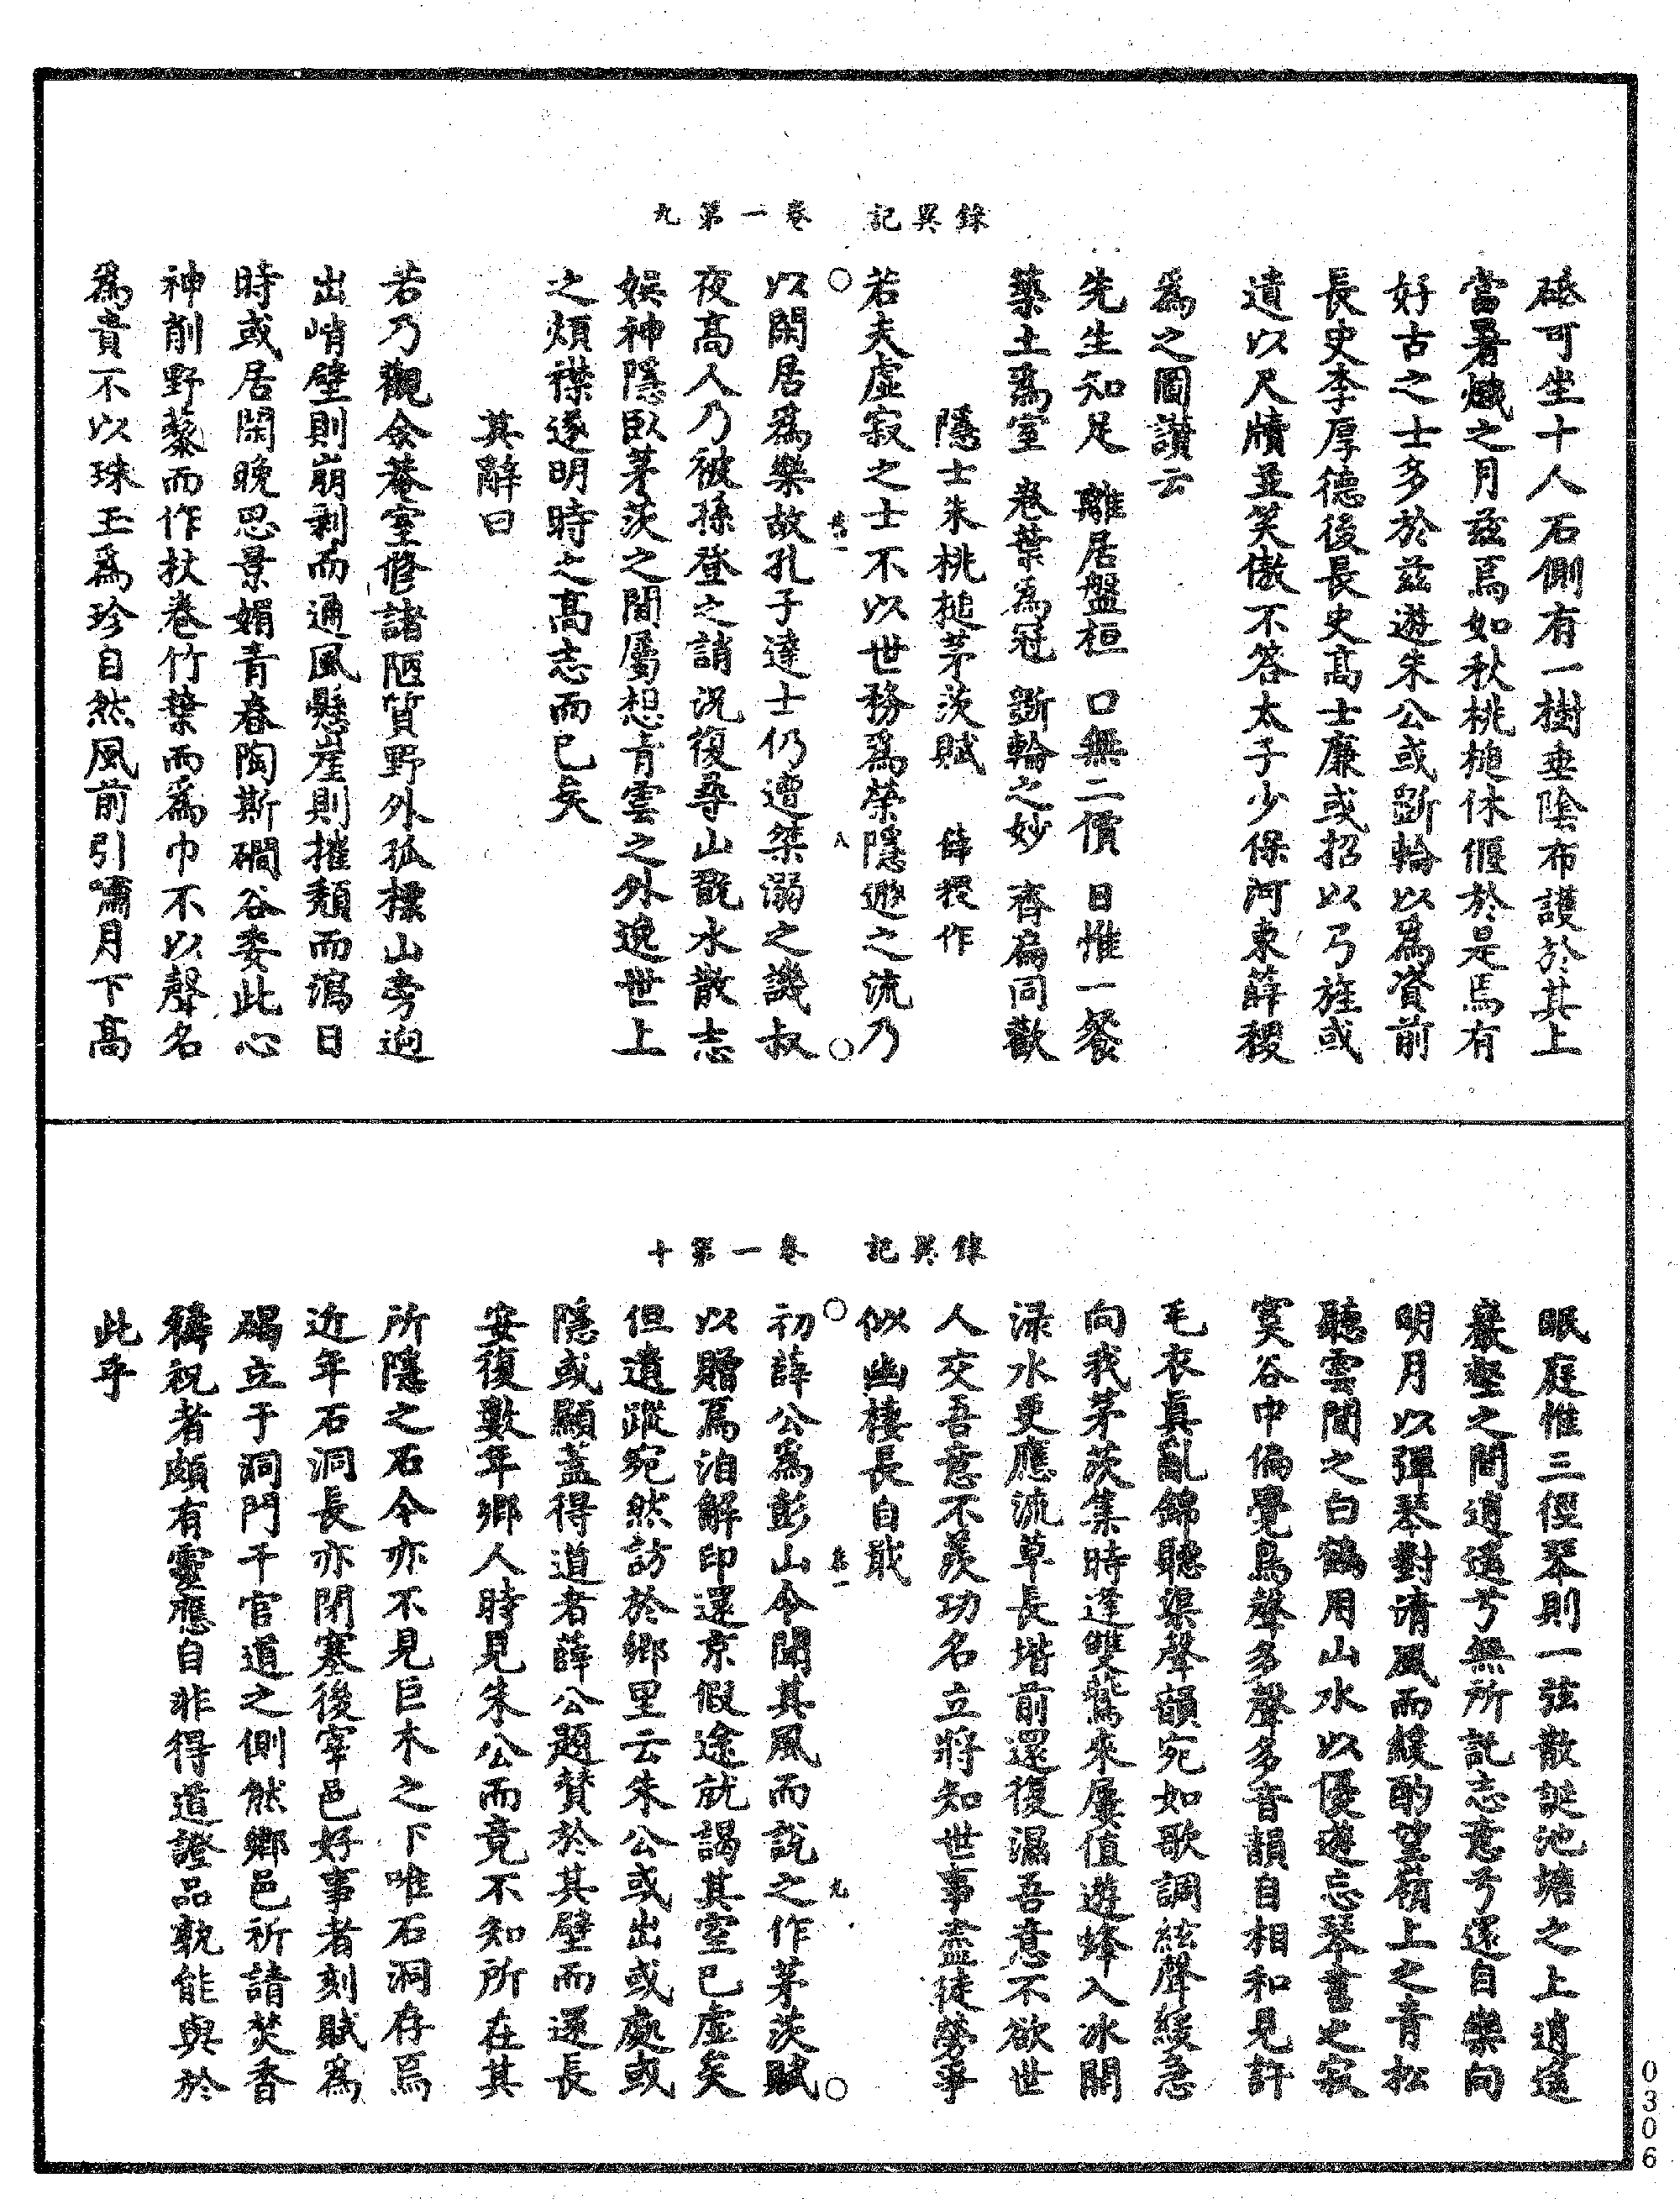 錄異記　卷一第九
硌可坐十人石側有一樹垂陰布護於其上
當暑熾之月茲焉如秋桃槌休偃於是焉有
好古之士多於茲遊朱公或斵輪以爲資前
長史李厚德後長史高士廉或招以弓旌或
遺以尺牘並笑傲不答太子少保河東薛稷
爲之圖讚云
先生知足　離居盤桓　口無二價　日惟一餐
築土爲室　卷葉爲冠　斵輪之妙　齊扁同歡
隱士朱桃槌茅茨賦　薛稷作
若夫虛寂之士不以世務爲榮隱遯之流乃
○　卷一　八　○
以閑居爲樂故孔子達士仍遭桀溺之譏叔
夜高人乃被孫登之誚況復尋山翫水散志
娛神隱臥茅茨之間屬想青雲之外逸世上
之煩襟遂明時之高志而已矣
其辭曰
若乃觀余菴室修諸陋質野外孤標山旁迥
出峭壁則崩剥而通風懸崖則摧頽而瀉日
時或居閑晚思景媚青春陶斯磵谷委此心
神削野藜而作扙卷竹葉而爲巾不以聲名
爲貴不以珠玉爲珍自然風前引嘯月下高
錄異記　卷一第十
眠庭惟三徑琴則一弦散誕池塘之上逍遥
巖壑之間逍遥兮無所託志意兮還自樂向
明月以彈琴對清風而緩酌望嶺上之青松
聽雲間之白鶴用山水以優遊忘琴書之寂
寞谷中偏覺鳥聲多聲多音韻自相和見許
毛衣真亂錦聽渠聲韻宛如歌調絃聲緩急
向我茅茨集時逢雙鷰來屢值遊蜂入冰開
渌水更應流草長堦前還復濕吾意不欲世
人交吾意不羨功名立將知世事盡徒勞事
似幽棲長自戢
○　卷一　九　○
初薛公爲彭山令聞其風而説之作茅茨賦
以贈焉洎解印還京假途就謁其室已虛矣
但遺蹤宛然訪於鄉里云朱公或出或處或
隱或顯蓋得道者薛公題賛於其壁而還長
安復數年鄉人時見朱公而竟不知所在其
所隱之石今亦不見巨木之下唯石洞存焉
近年石洞長亦閉塞後宰邑好事者刻賦爲
碣立于洞門千官道之側然鄉邑祈請焚香
禱祝者頗有靈應自非得道證品孰能與於
此乎
0306